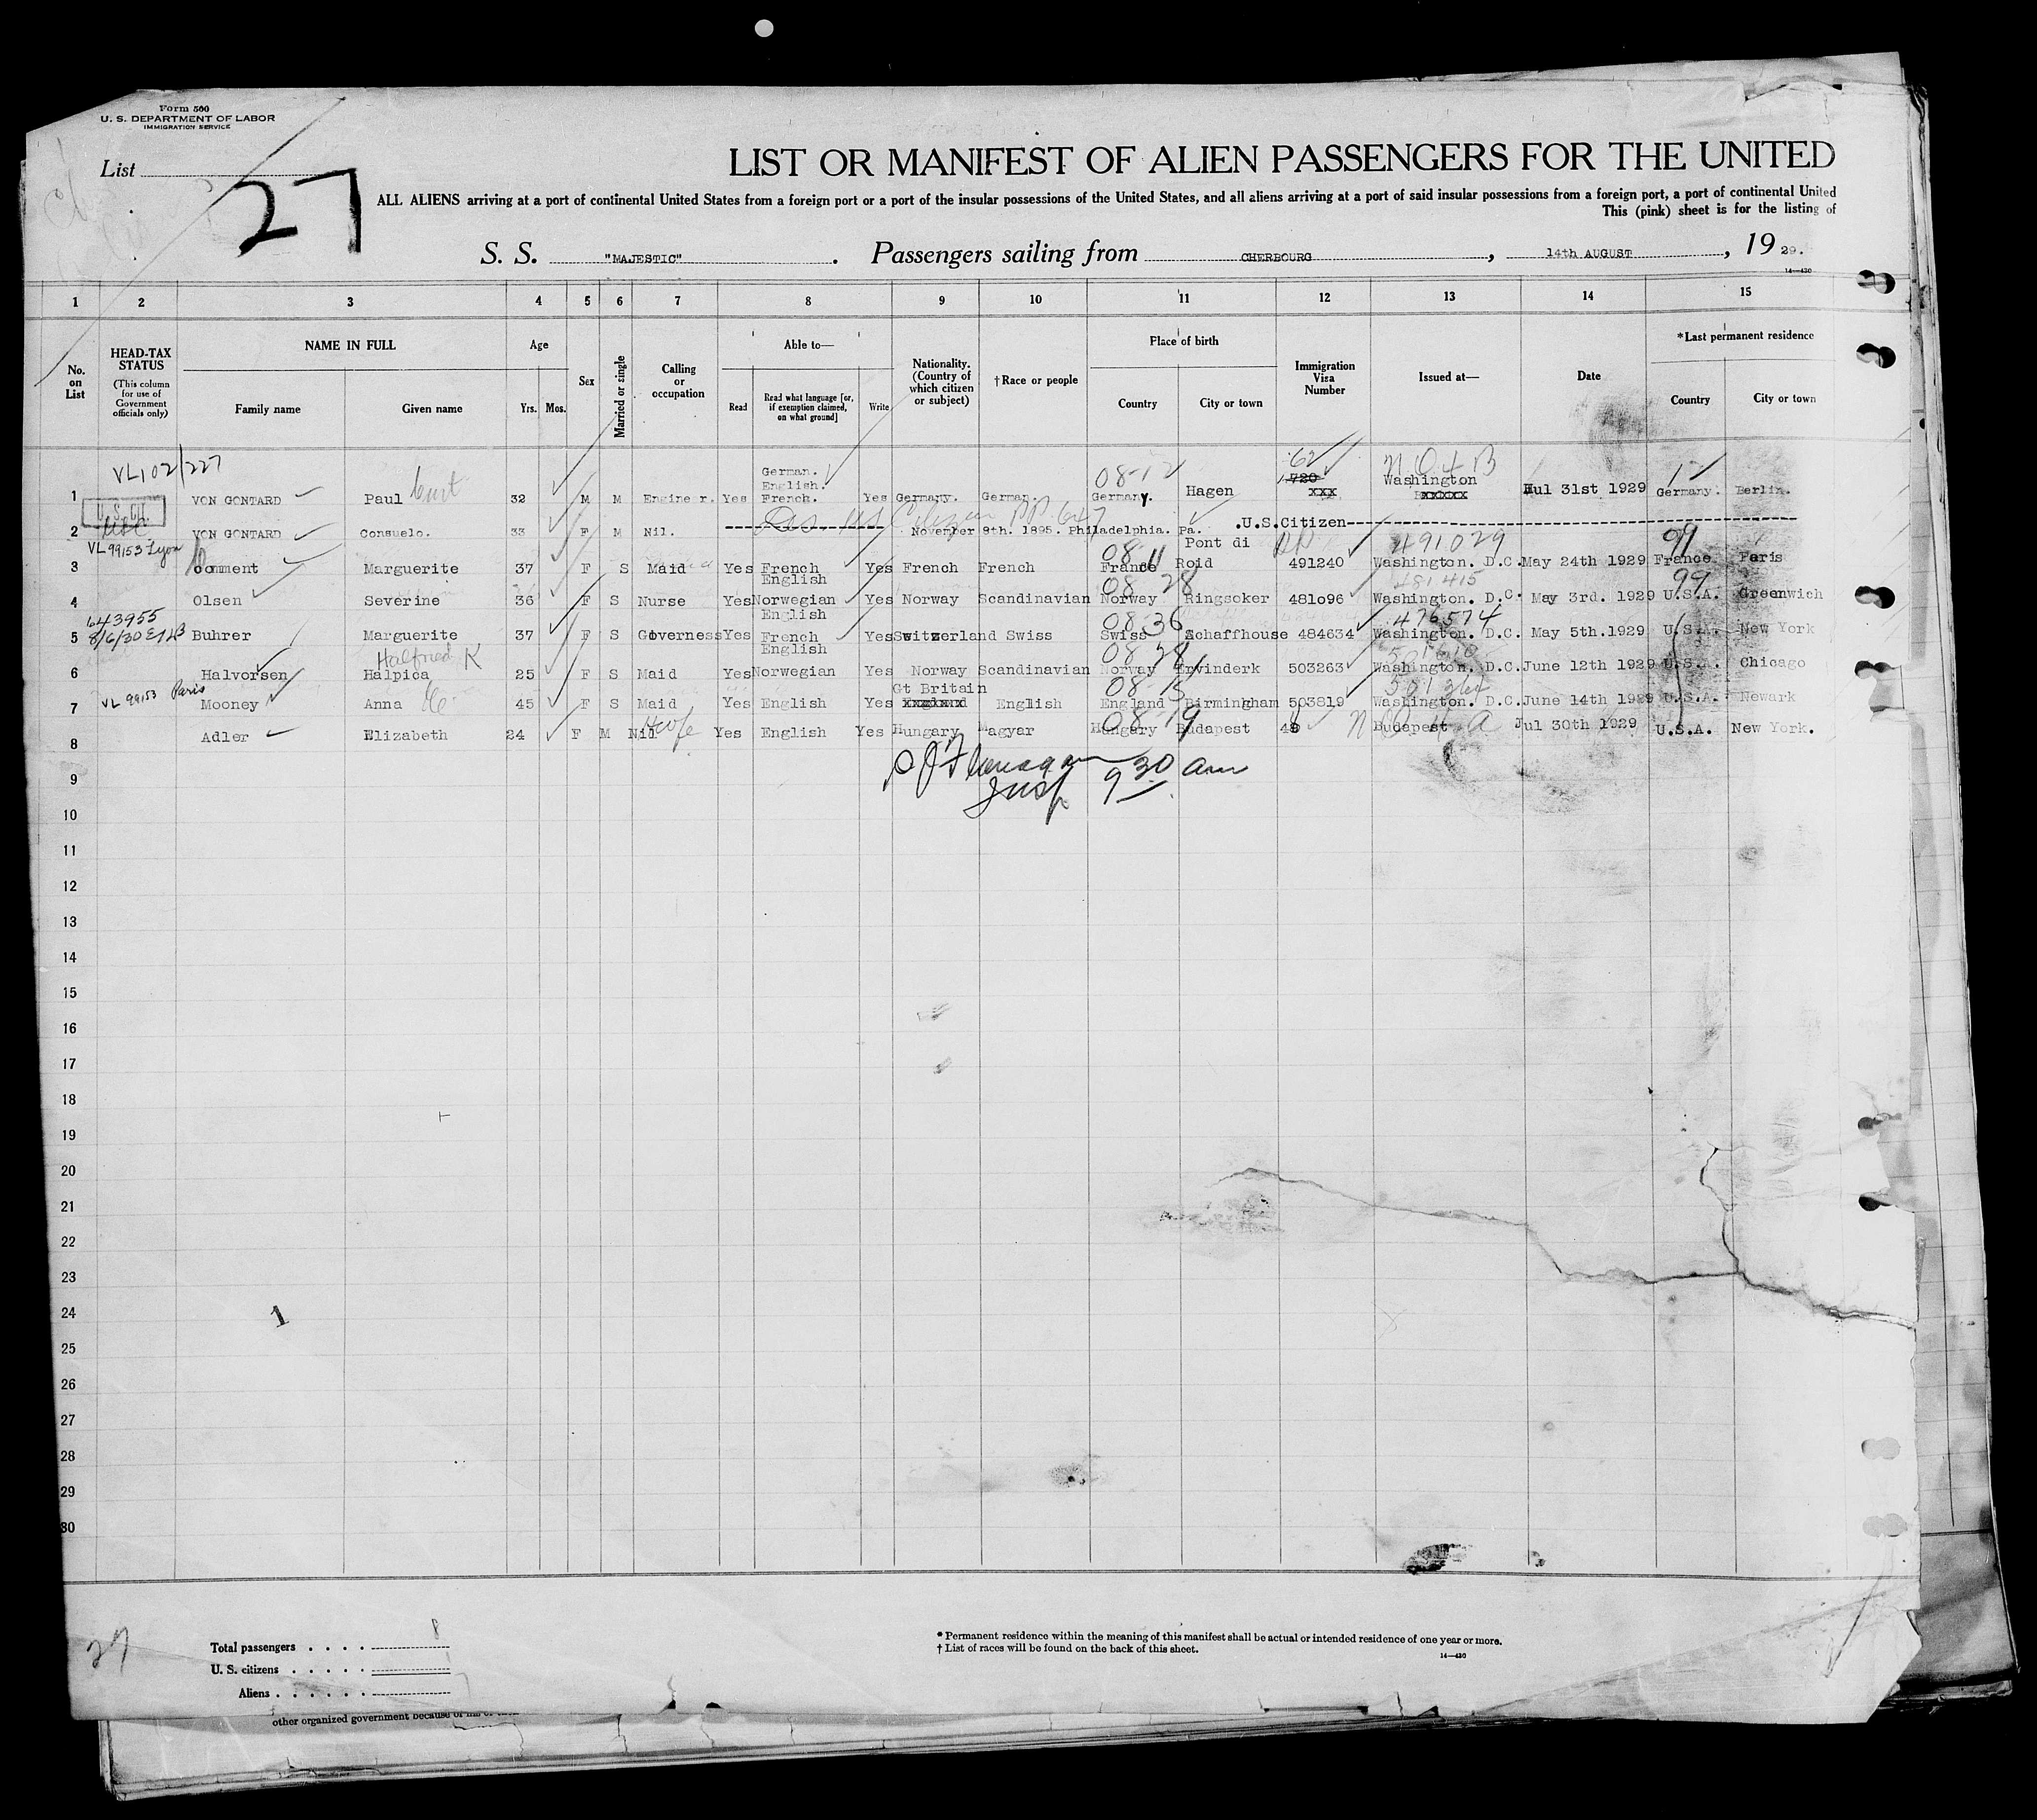 Form 500
U. S. DEPARTMENT OF LABOR
IMMIGRATION SERVICE
List
27
LIST OR MANIFEST OF ALIEN PASSENGERS FOR THE UNITED
ALL ALIENS arriving at a port of continental United States from a foreign port or a port of the insular possessions of the United States, and all aliens arriving at a port of said insular possessions from a foreign port, a port of continental United
This (pink) sheet is for the listing of
S. S. "MAJESTIC". Passengers sailing from CHERBOURG, 14th AUGUST, 19 29.
14—430
1 2 3 4 5 6 7 8 9 10 11 12 13 14 15
No. on List
HEAD-TAX STATUS (This column for use of Government officials only)
NAME IN FULL
Family name Given name
Age
Yrs. Mos.
Sex
Married or single
Calling or occupation
Able to—
Read Read what language [or, if exemption claimed, on what ground] Write
Nationality. (Country of which citizen or subject)
†Race or people
Place of birth
Country City or town
Immigration Visa Number
Issued at—
Date
*Last permanent residence
Country City or town
VL102/227
62
08-12
German.
English.
1 VON GONTARD Paul Curt 32 M M Engineer. Yes French. Yes Germany. German. Germany. Hagen 720 xxx Washington Jul 31st 1929 Germany. Berlin.
U.S. CIT.
2 VON GONTARD Consuelo. 33 F M Nil. November 8th. 1895. Philadelphia. Pa. .U.S.Citizen
VL 99153 Lyon
08 11 Pont di 491029 99
3 Comment Marguerite 37 F S Maid Yes French Yes French French France Roid 491240 Washington. D.C. May 24th 1929 France Paris
English 08 28 481415 99
4 Olsen Severine 36 F S Nurse Yes Norwegian Yes Norway Scandinavian Norway Ringsoker 481096 Washington. D.C. May 3rd. 1929 U.S.A. Greenwich
643955
English 08 36 476574
5 8/6/30 Buhrer Marguerite 37 F S Governess Yes French Yes Switzerland Swiss Swiss Schaffhouse 484634 Washington. D.C. May 5th.1929 U.S.A. New York
Halfried K English 08 28
6 Halvorsen Halpica 25 F S Maid Yes Norwegian Yes Norway Scandinavian Norway Ervinderk 503263 Washington. D.C. June 12th 1929 U.S.A. Chicago
VL 99153 Paris Gt Britain 08-15 501364
7 Mooney Anna 45 F S Maid Yes English Yes xxxxxxx English England Birmingham 503819 Washington. D.C. June 14th 1929 U.S.A. Newark
Hwfe 08-19
8 Adler Elizabeth 24 F M Nil Yes English Yes Hungary Magyar Hungary Budapest 48 Budapest Jul 30th 1929 U.S.A. New York.
9
Flanagan 9 30 am
Insp
10
11
12
13
14
15
16
17
18
19
20
21
22
23
24
1
25
26
27
28
29
30
27
Total passengers . . . . 8
U. S. citizens . . . . .
Aliens . . . . . .
* Permanent residence within the meaning of this manifest shall be actual or intended residence of one year or more.
† List of races will be found on the back of this sheet.
14—430
other organized government because of